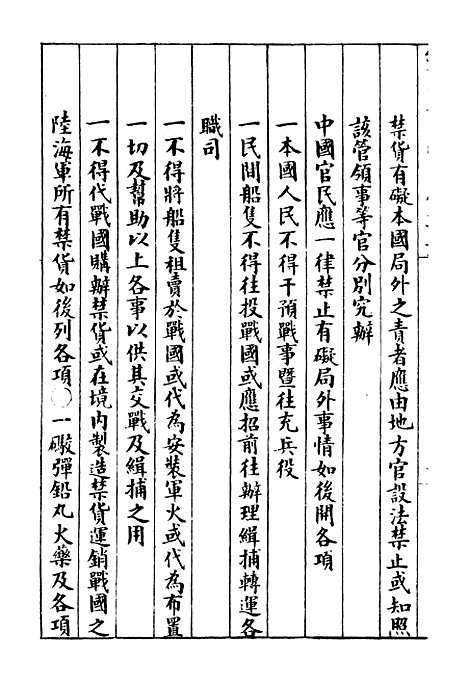 禁貨有礙本國局外之責者應由地方官設法禁止或知照
該管領事等官分別究辦
中國官民應一律禁止有礙局外事情如後開各項
一本國人民不得干預戰事暨往充兵役
一民間船隻不得往投戰國或應招前往辦理緝捕轉運各
職司
一不得將船隻租賣於戰國或代為安裝軍火或代為布置
一切及幫助以上各事以供其交戰及緝捕之用
一不得代戰國購辦禁貨或在境內製造禁貨運銷戰國之
陸海軍所有禁貨如後列各項〇一礮彈鉛丸火藥及各項